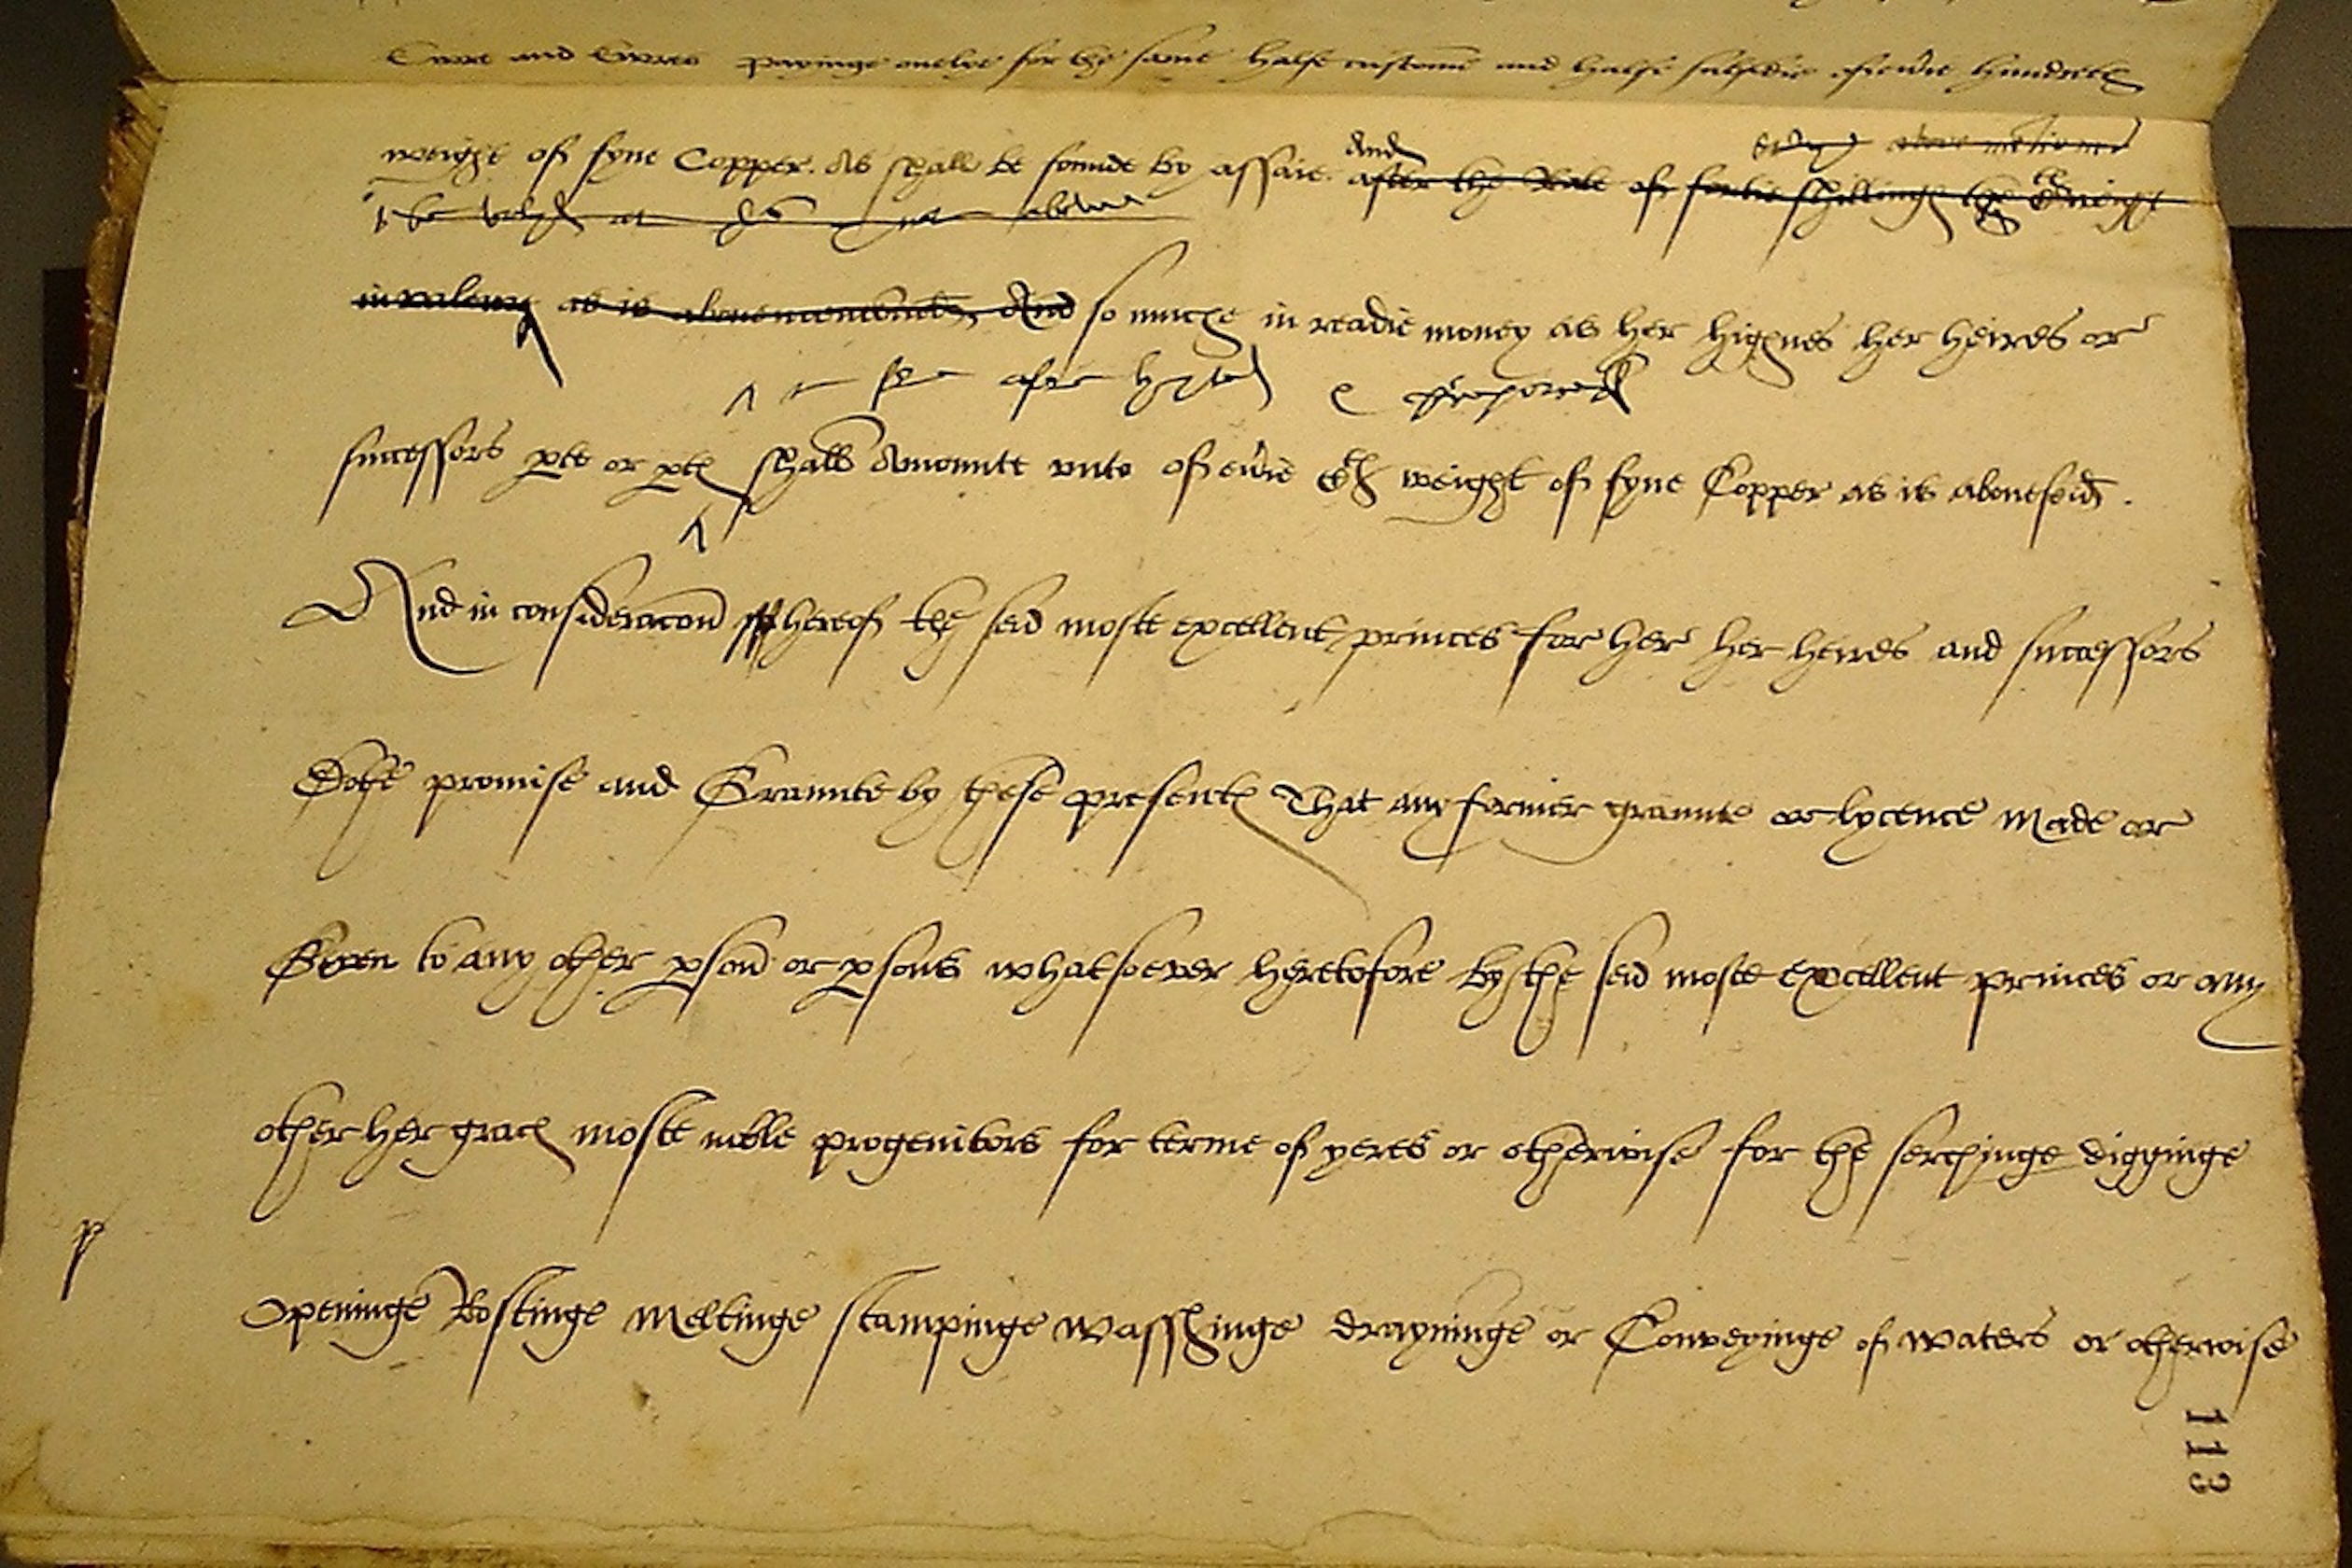 Ewre and Ewres payinge onelye for the same halfe custome and halfe subsedie of eu'ie hundreth
weight of fyne Copper. As shall be founde by assaie. And after the Rate of fortie shillings the Cth weight
above
in valewe as is abovemencioned. And so muche in readie money as her highnes her heires or
after
successors pte or ptes shall Amounte unto of eu'ie Cth weight of fyne Copper as is abovesaid.
And in consideracon whereof the said moste excellent princes for her her heires and successors
Dothe promise and Graunte by these presents That any former graunte or lycence made or
Geven to any other pson or psons whatsoever heretofore by the said moste excellent princes or any
other her graces moste noble progenitors for terme of yeres or otherwise for the serchinge digginge
p
Openinge Rostinge Meltinge stampinge wasshinge drayninge or Conveyinge of waters or otherwise
113